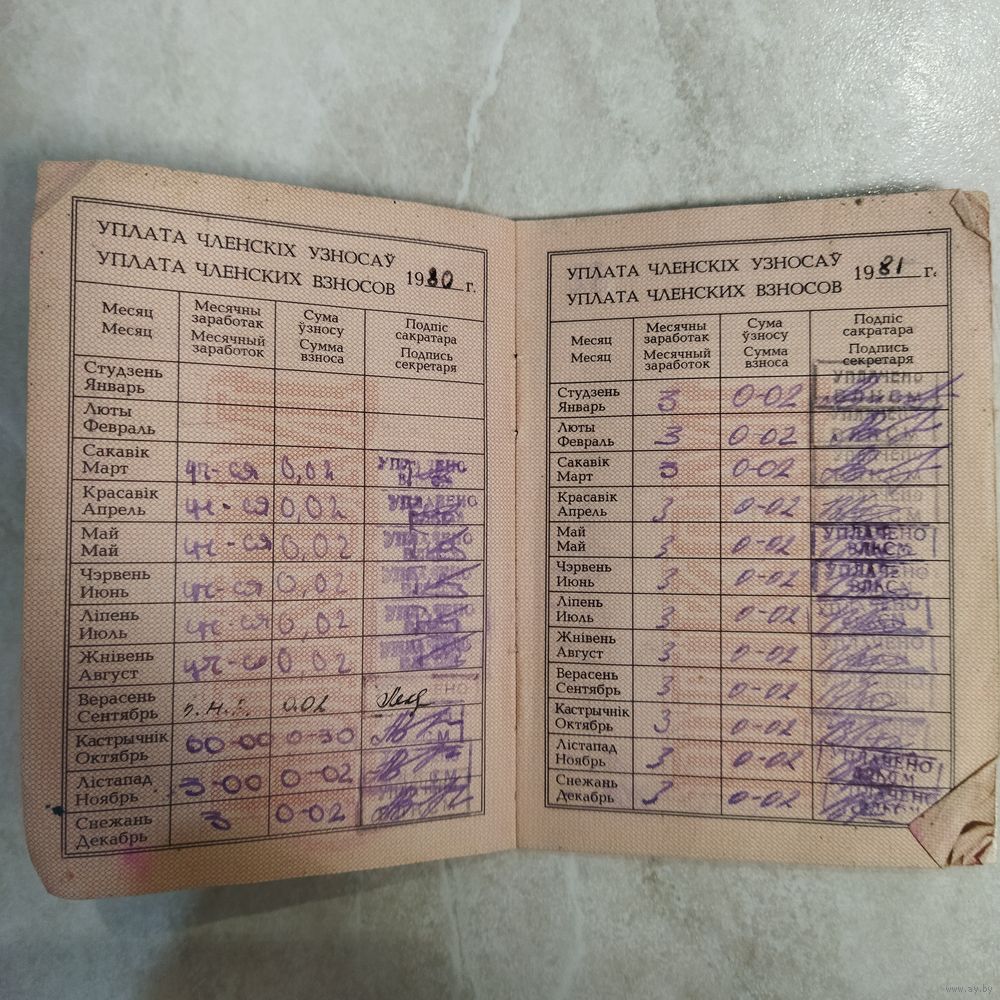 УПЛАТА ЧЛЕНСКІХ УЗНОСАЎ
УПЛАТА ЧЛЕНСКИХ ВЗНОСОВ 1980 г.
Месяц
Месяц
Месячны заработак
Месячный заработок
Сума ўзносу
Сумма взноса
Подпіс сакратара
Подпись секретаря
Студзень
Январь
Люты
Февраль
Сакавік
Март уч-ся 0,02 УПЛАЧЕНО
Красавік
Апрель уч-ся 0,02 УПЛАЧЕНО
ВЛКСМ
Май
Май уч-ся 0,02 УПЛАЧЕНО
Чэрвень
Июнь уч-ся 0,02 УПЛАЧЕНО
Ліпень
Июль уч-ся 0,02 УПЛАЧЕНО
Жнівень
Август уч-ся 0,02 УПЛАЧЕНО
Верасень
Сентябрь 0.02
Кастрычнік
Октябрь 00-00 0-30
Лістапад
Ноябрь 3-00 0-02
Снежань
Декабрь 3 0-02
УПЛАТА ЧЛЕНСКІХ УЗНОСАЎ
УПЛАТА ЧЛЕНСКИХ ВЗНОСОВ 1981 г.
Месяц
Месяц
Месячны заработак
Месячный заработок
Сума ўзносу
Сумма взноса
Подпіс сакратара
Подпись секретаря
Студзень
Январь 3 0-02 УПЛАЧЕНО
ВЛКСМ
Люты
Февраль 3 0-02 УПЛАЧЕНО
ВЛКСМ
Сакавік
Март 3 0-02 УПЛАЧЕНО
Красавік
Апрель 3 0-02
Май
Май 3 0-02 УПЛАЧЕНО
ВЛКСМ
Чэрвень
Июнь 3 0-02 УПЛАЧЕНО
ВЛКСМ
Ліпень
Июль 3 0-02 УПЛАЧЕНО
Жнівень
Август 3 0-02
Верасень
Сентябрь 3 0-02
Кастрычнік
Октябрь 3 0-02
Лістапад
Ноябрь 3 0-02 УПЛАЧЕНО
ВЛКСМ
Снежань
Декабрь 3 0-02 УПЛАЧЕНО
ВЛКСМ
www.ay.by